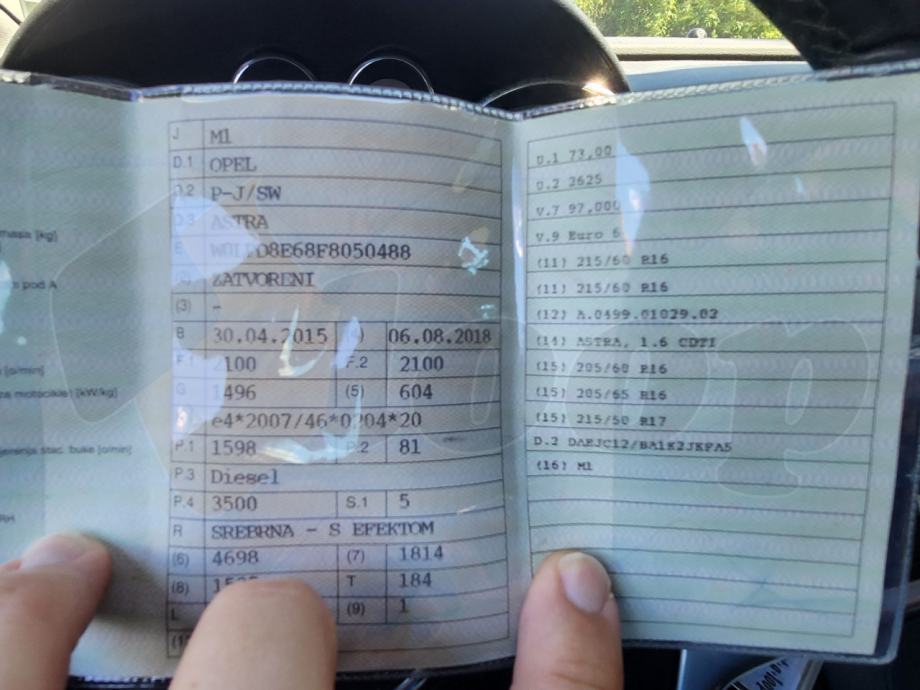 masa [kg]
pod A
[o/min]
motocikle) [kW/kg]
stac. buke [o/min]
J M1
D.1 OPEL
D.2 P-J/SW
D.3 ASTRA
E
(2) ZATVORENI
(3) -
B 30.04.2015 (4) 06.08.2018
F.1 2100 F.2 2100
G 1496 (5) 604
e4*2007/46*0204*20
P.1 1598 P.2 81
P.3 Diesel
P.4 3500 S.1 5
R SREBRNA - S EFEKTOM
(6) 4698 (7) 1814
(8) T 184
L (9) 1
U.1 73,00
U.2 2625
V.7 97,000
V.9 Euro 6
(11) 215/60 R16
(11) 215/60 R16
(12) A.0499.01029.02
(14) ASTRA, 1.6 CDTI
(15) 205/60 R16
(15) 205/65 R16
(15) 215/50 R17
D.2
(16) M1